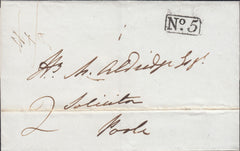 No. 5
Hy. M. Aldridge Esqr.
Solicitor
2
Poole